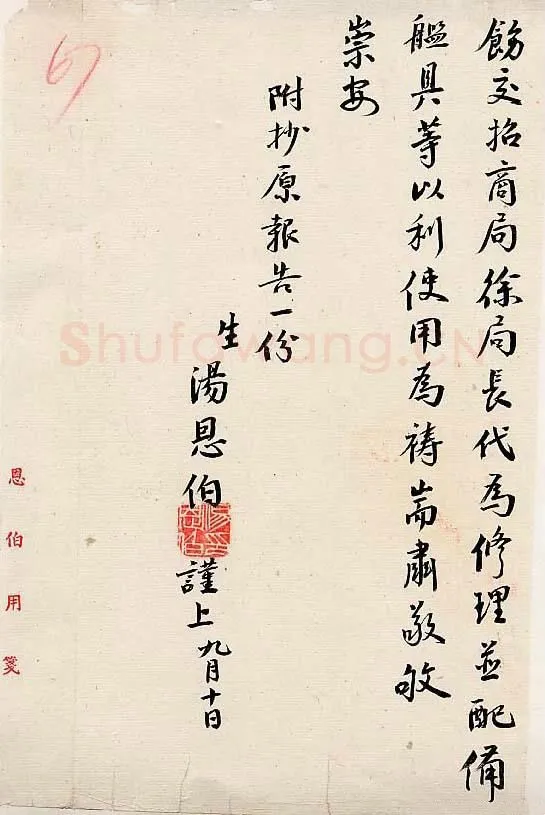 飭交招商局徐局長代為修理並配備
艦具等以利使用為禱耑肅敬敂
崇安
附抄原報告一份
生湯恩伯謹上九月十日
恩伯用箋
Shufawang.CN